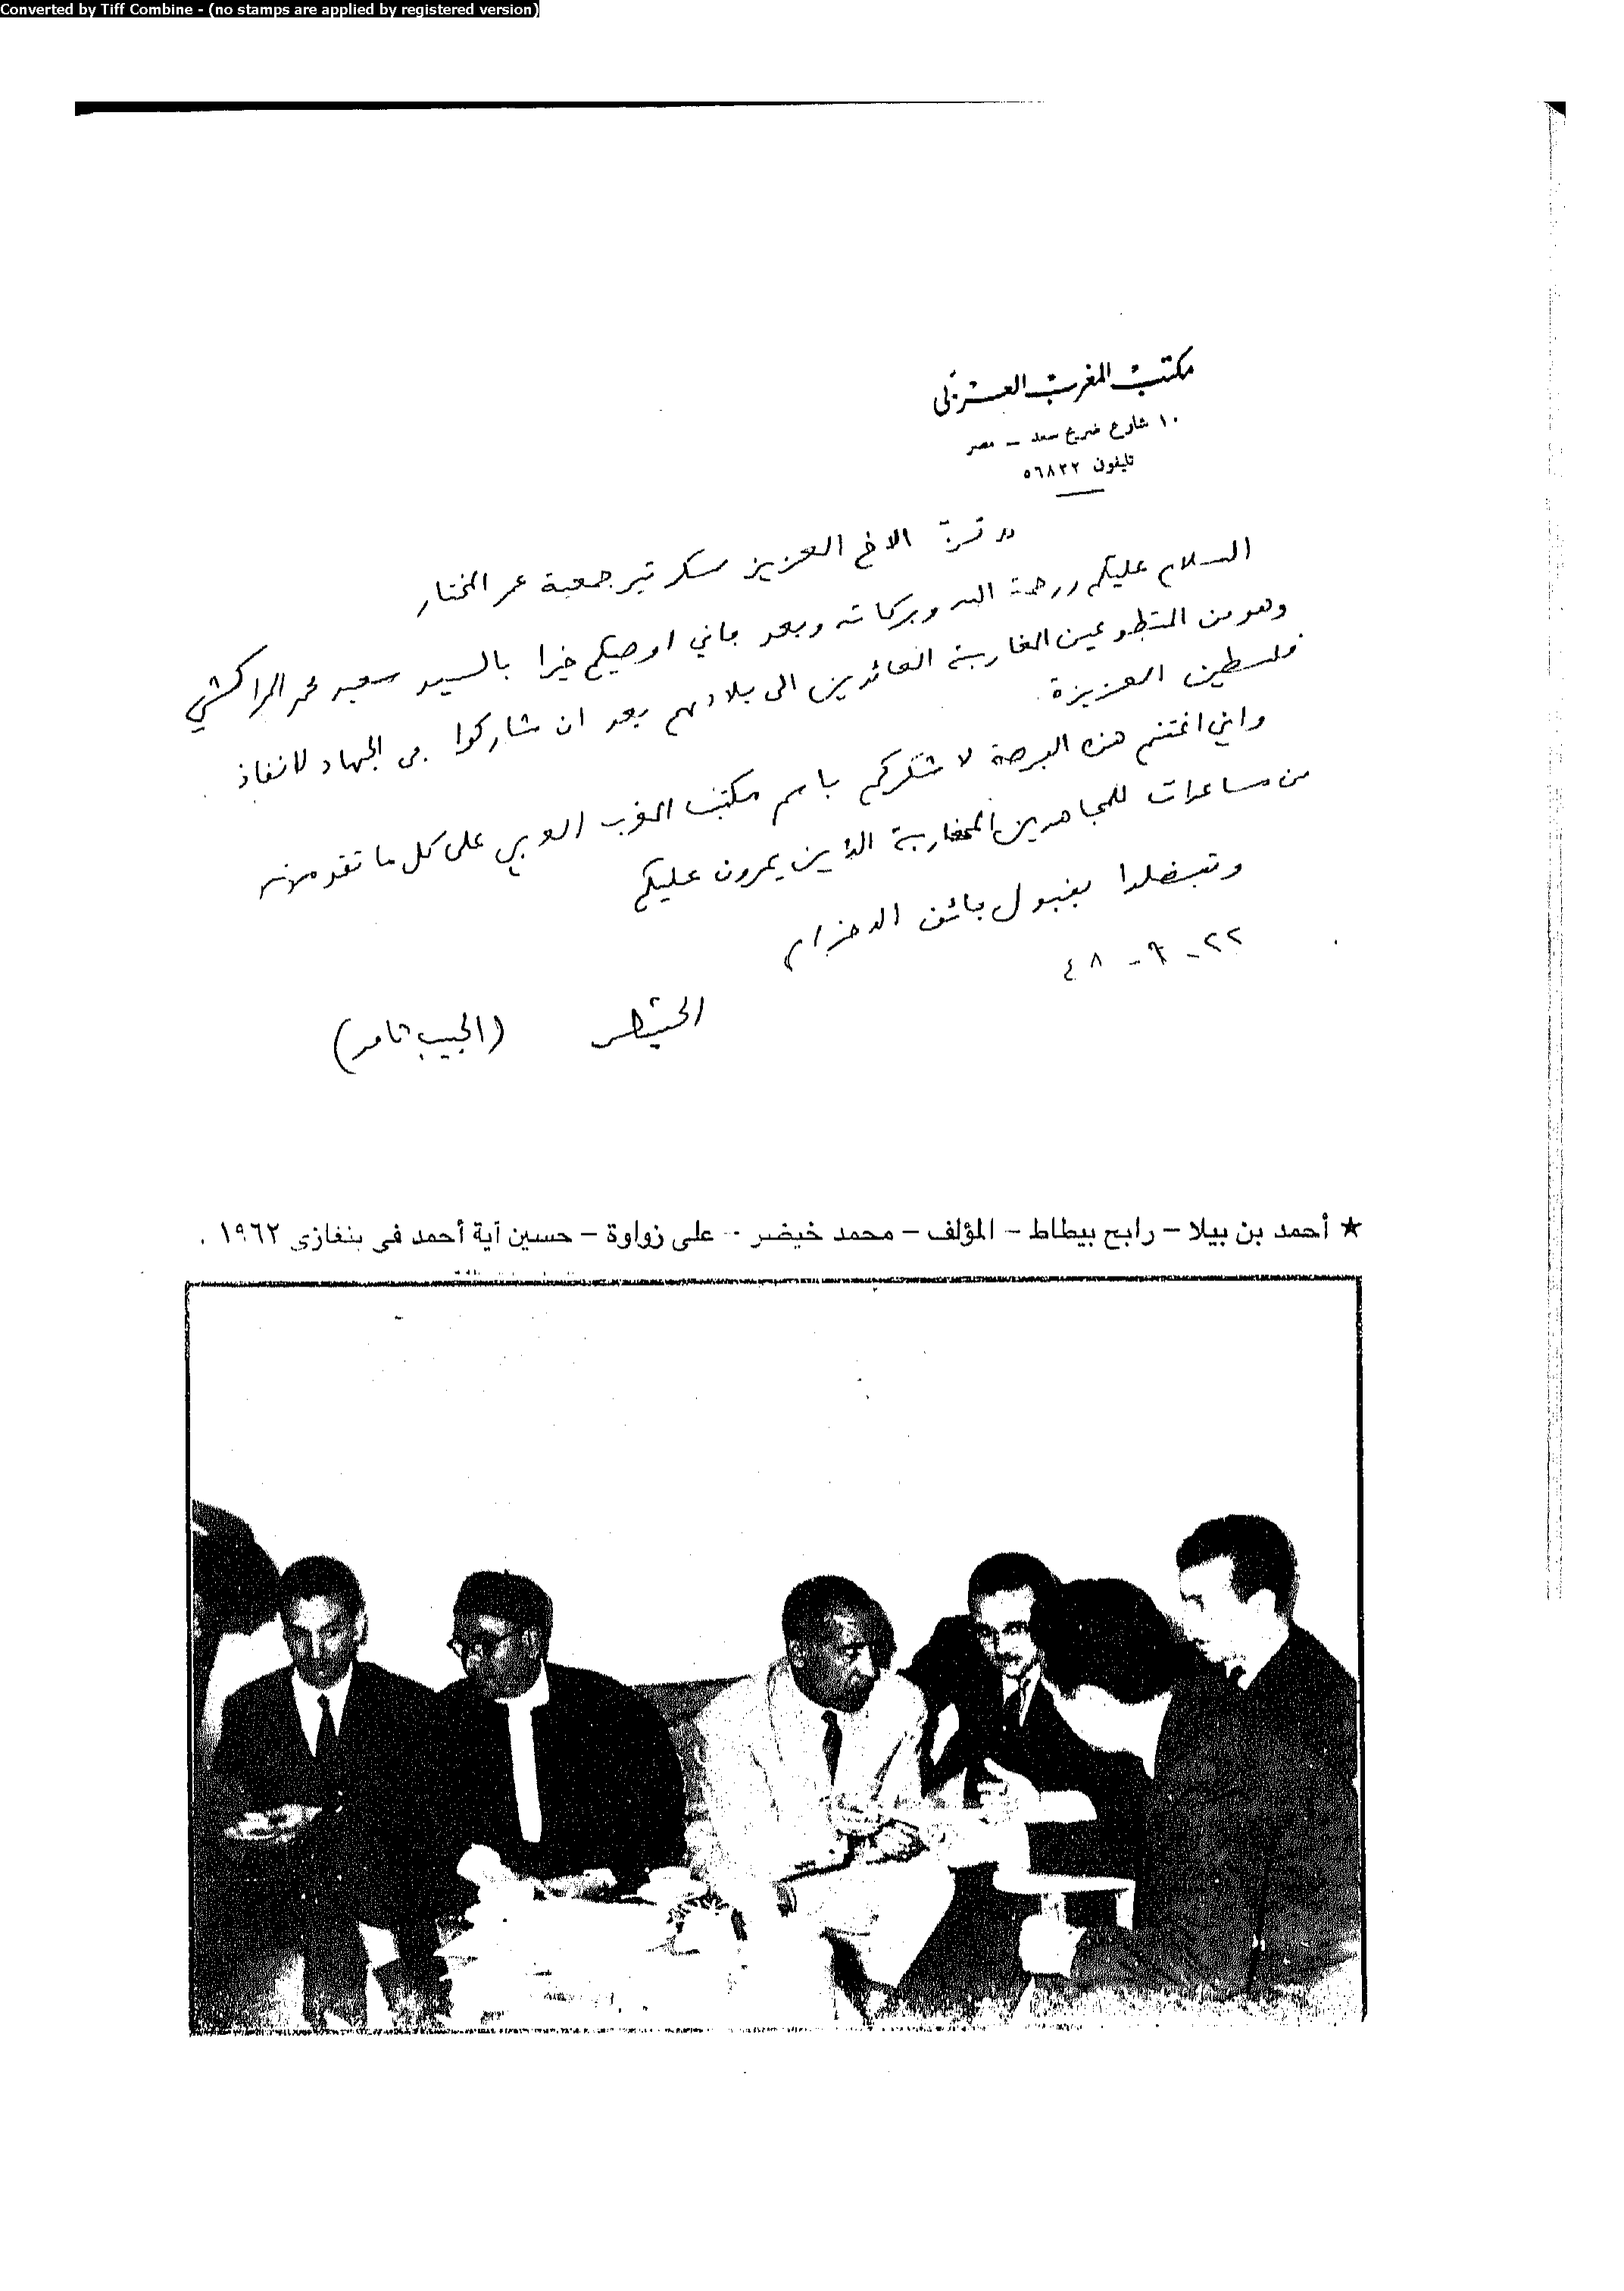 Converted by Tiff Combine - (no stamps are applied by registered version)
مكتب المغرب العربى
١٠ شارع ضريح سعد – مصر
تليفون ٥٦٨٣٢
الاخ العزيز سكرتير جمعية عمر المختار
السلام عليكم ورحمة الله وبركاته وبعد فاني اوصيكم خيرا بالسيد سعيد محمد المراكشي
وهو من المتطوعين المغاربة العائدين الى بلادهم بعد ان شاركوا في الجهاد لانقاذ
فلسطين العزيزة
واني اغتنم هذه الفرصة لاشكركم باسم مكتب المغرب العربي على كل ما تقدمونه
من مساعدات للمجاهدين المغاربة الذين يمرون عليكم
وتفضلوا بقبول فائق الاحترام
٢٢ - ٩ - ٤٨
(الحبيب ثامر)
★ أحمد بن بيلا – رابح بيطاط – المؤلف – محمد خيضر – على زواوة – حسين آية أحمد فى بنغازى ١٩٦٢ .